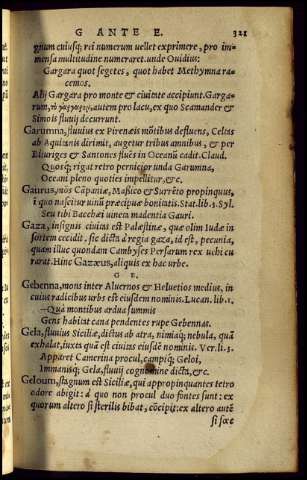 G ANTE E. 321
gnum cuiusq; rei numerum uellet exprimere, pro im-
mensa multitudine numeraret. unde Ouidius:
Gargara quot segetes, quot habet Methymna ra-
cemos.
Alij Gargara pro monte & ciuitate accipiunt. Garga-
rum, autem pro lacu, ex quo Scamander &
Simois fluuij decurrunt.
Garumna, fluuius ex Pirenæis mõtibus defluens, Celtas
ab Aquitanis dirimit, augetur tribus amnibus, & per
Bituriges & Santones flués in Oceanũ cadit. Claud.
Quosq; rigat retro pernicior unda Garumna,
Oceani pleno quoties impellitur, &c.
Gaurus, mõs Cãpaniæ, Massico & Surrẽto propinquus,
ĩ quo nascitur uinũ præcipuæ bonitatis. Stat. lib. 3. Syl.
Seu tibi Bacchei uinea madentia Gauri.
Gaza, insignis ciuitas est Palæstinæ, quæ olim Iudæ in
sortem cecidit, sic dicta à regia gaza, id est, pecunia,
quam illuc quondam Cambyses Persarum rex uehi cu
rarat. Hinc Gazæus, aliquis ex hac urbe.
G E.
Gebenna, mons inter Aluernos & Heluetios medius, in
cuius radicibus urbs est eiusdem nominis. Lucan. lib. 1.
—Quà montibus ardua summis
Gens habitat cana pendentes rupe Gebennas.
Gela, fluuius Siciliæ, dictus ab atra, nimiaq; nebula, quã
exhalat, iuxta quã est ciuitas eiusdẽ nominis. Ver. li. 3.
Apparet Camerina procul, campiq; Geloi,
Immanisq; Gela, fluuij cognomine dicta, &c.
Geloum, stagnum est Siciliæ, qui appropinquantes tetro
odore abigit: à quo non procul duo fontes sunt: ex
quorum altero si sterilis bibat, cõcipit: ex altero autẽ
si fœ